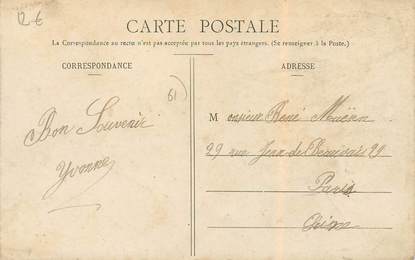 12 €
CARTE POSTALE
La Correspondance au recto n'est pas acceptée par tous les pays étrangers. (Se renseigner à la Poste.)
CORRESPONDANCE
ADRESSE
61)
Bon Souvenir
Yvonne
Monsieur René
29 rue Jean de 29
Paris